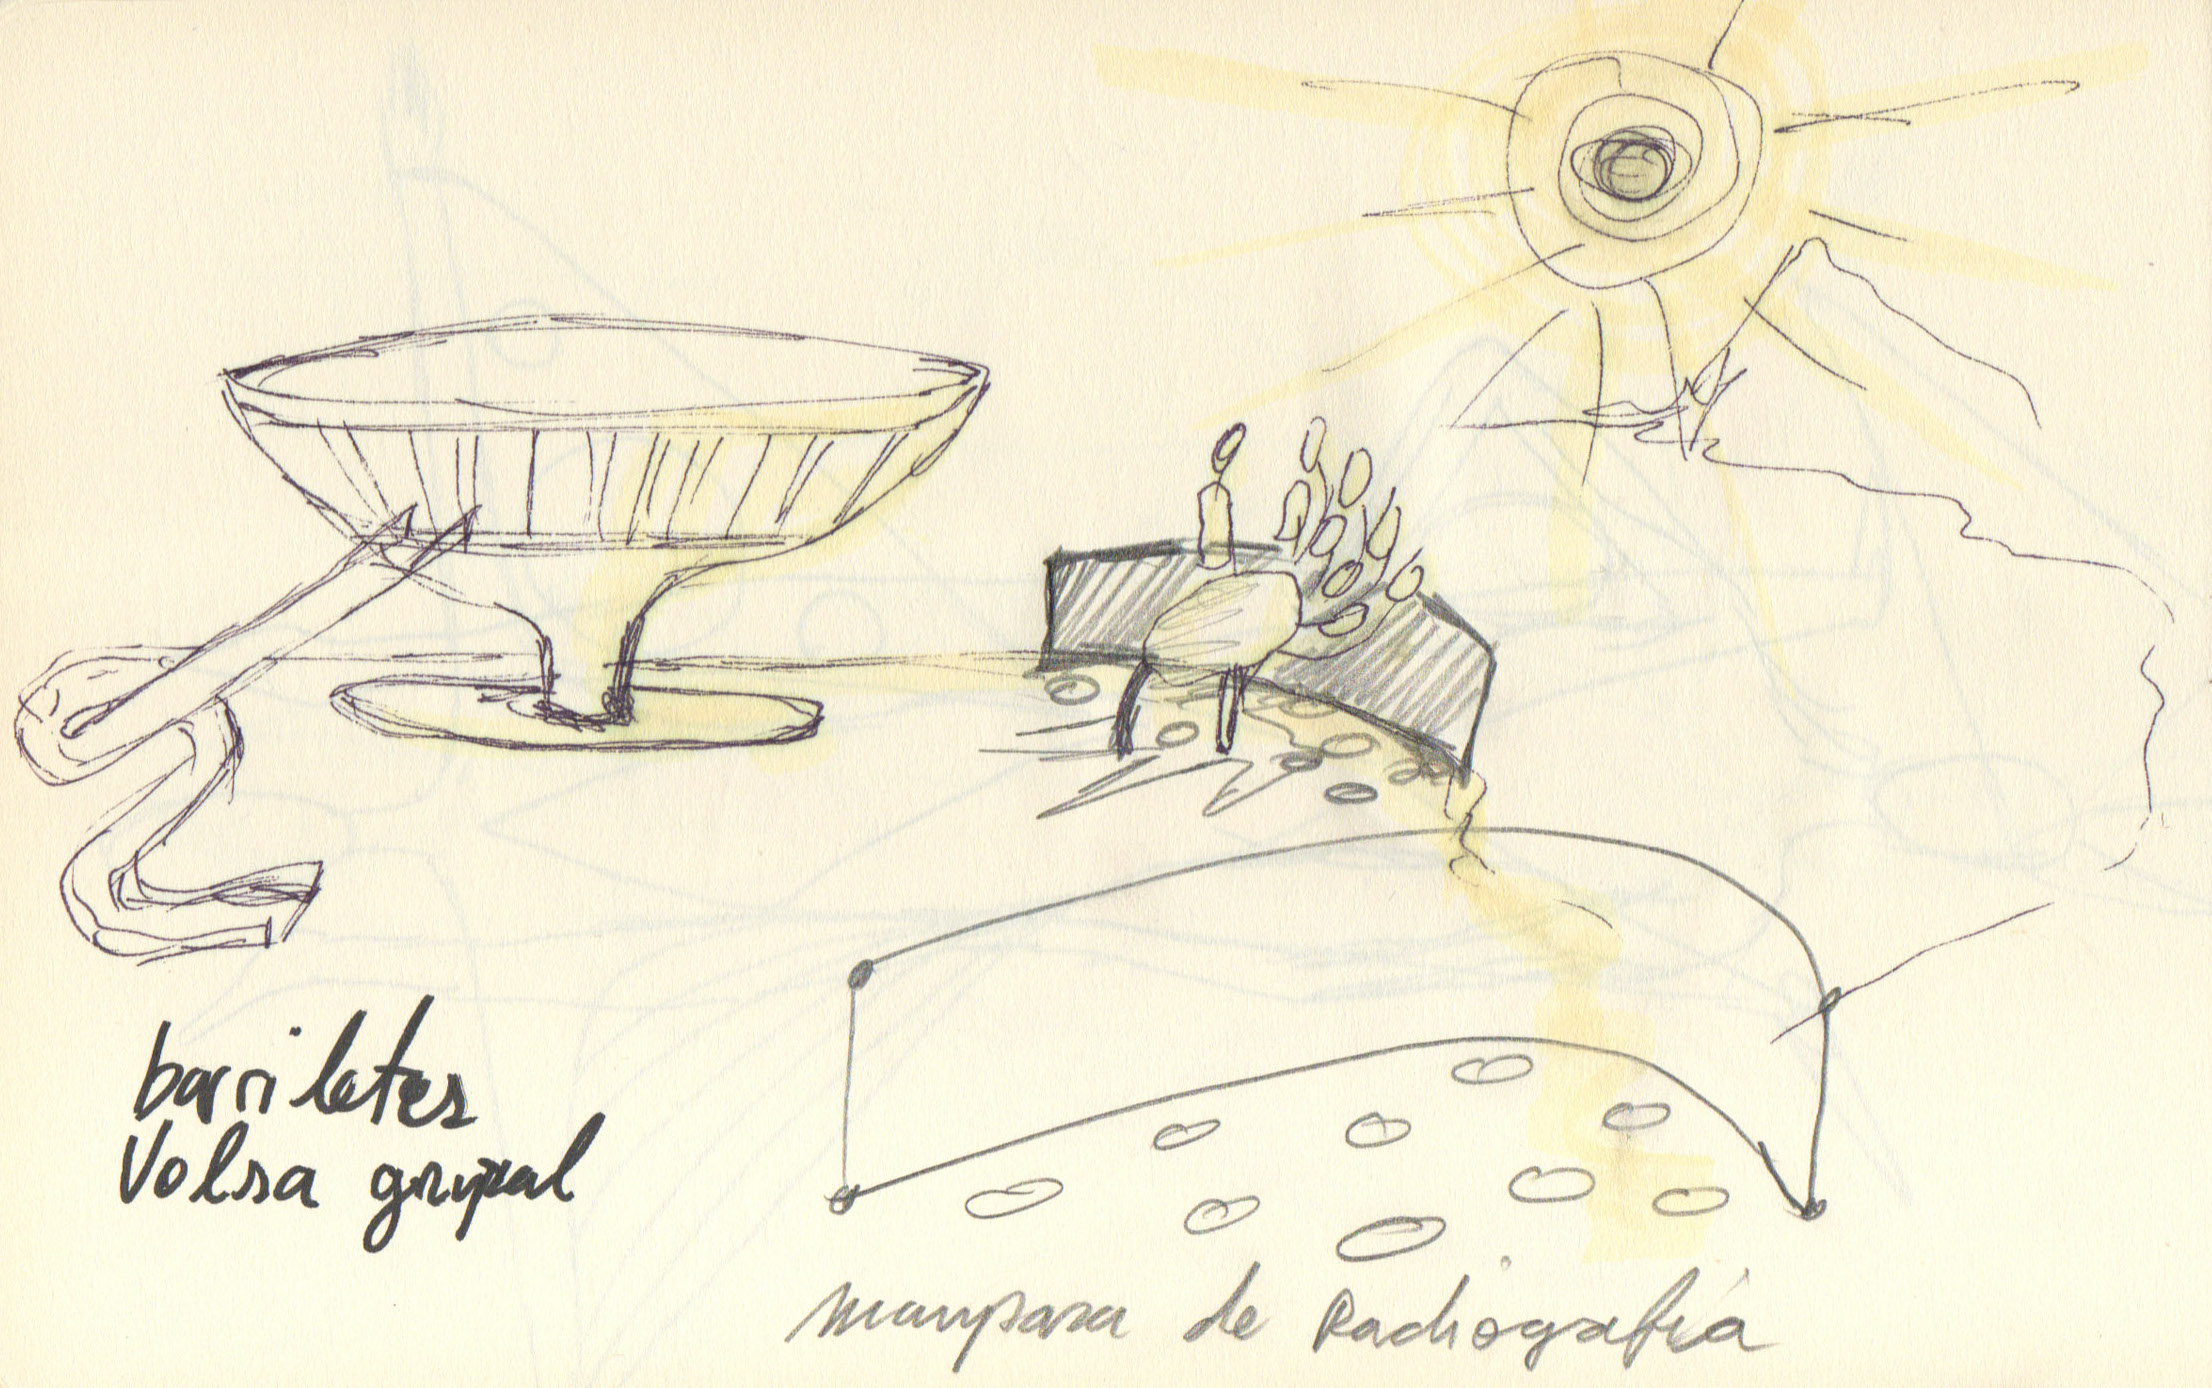 barriletes
Volsa grupal
mampara de Radiografía